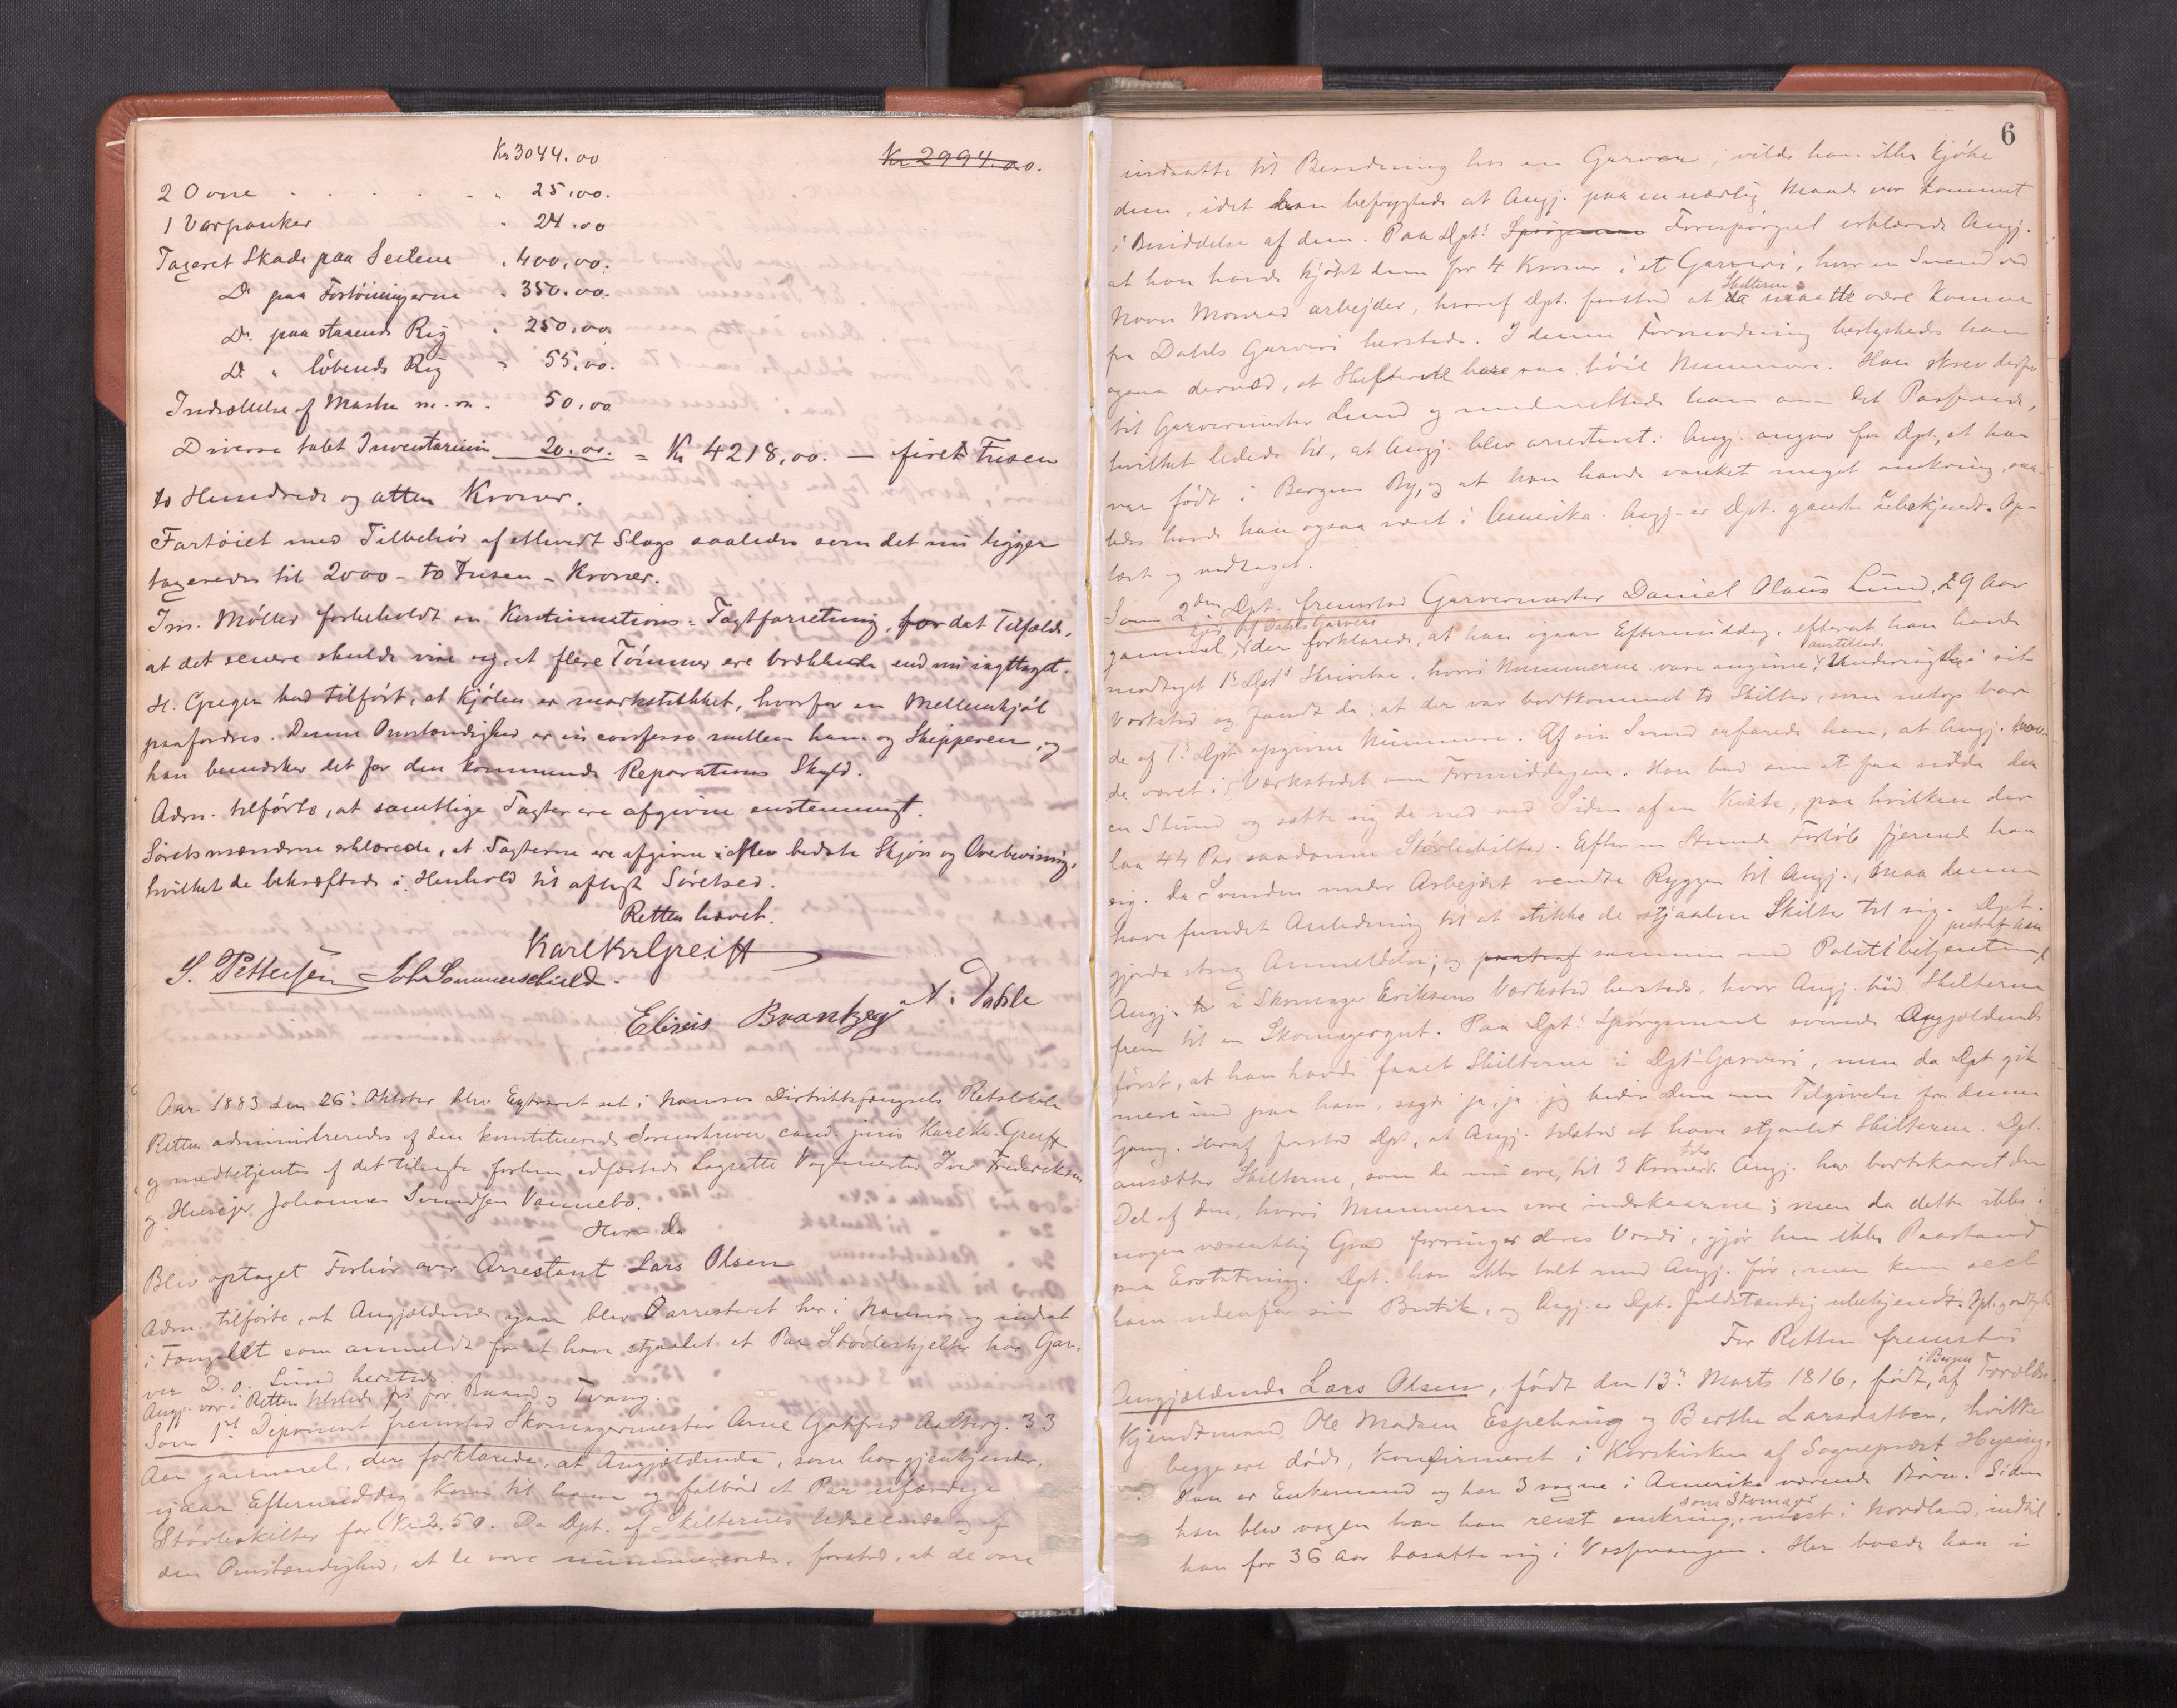 Kr 3044.00 Kr 2994.00.
2 Ovne . . . . . „ 25.00.
1 Varpanker „ 24.00
Taxeret Skade paa Seilene „ 400.00.
Do paa Fortøiningerne „ 350.00.
Do paa staaende Rig „ 250.00.
Do „ løbende Rig „ 55.00.
Indsættelse af Master m.m. 50.00
Diverse tabt Inventarium 20.00. = Kr 4218,00. — firet Tusen
to Hundrede og atten Kroner.
Fartøiet med Tilbehør af ethvert Slags saaledes som det nu ligger
taxeredes til 2000 - to Tusen - Kroner.
Ins. Møller forbeholdt en Kontinuations-Taxtforretning, for det Tilfælde,
at det senere skulde vise sig, at flere Tømmer ere brækkede end nu iagttaget.
H. Gregen bad tilført, at Kjølen er markstukket, hvorfor en Mellemkjøl
paafordres. Denne Omstændighed er in confesso mellem ham og Skipperen, og
han bemærker det for den kommende Reparations Skyld.
Adm. tilførte, at samtlige Taxter ere afgivne enstemmigt.
Søretsmændene erklærede, at Taxterne ere afgivne efter bedste Skjøn og Overbevisning,
hvilket de bekræftede i Henhold til aflagt Søretsed.
Retten hævet.
Karl Kr. Greiff
S. Pettersen Joh. Sommerschield.
Eliseis Brantzeg A. Dahle
Aar 1883 den 26de Oktober blev Extraret sat i Namsos Distriktsfængsels Retslokale
Retten administreredes af den konstituerede Sorenskriver cand. juris Karl Kr. Greiff
og medbetjentes af det tilsagte forhen edfæstede Lagrette Vagtmester Iver Frederiksen
og Huseier Johannes Svendsen Vannebo.
Hvor da
Blev optaget Forhør over Arrestant Lars Olsen
Adm. tilførte, at Angjældende igaar blev arresteret her i Namsos og indsat
i Fængslet som anmeldt for at have stjaalet et Par Støvleskjelter hos Gar-
ver D. O. Lund hersteds.
Angj. var i Retten tilstede fri for Baand og Tvang.
Som 1ste Deponent fremstod Skomagermester Arne Gotfred Aalberg. 33
Aar gammel, der forklarede, at Angjældende, som han gjenkjender,
igaar Eftermiddag kom til ham og falbød et Par ufærdige
Støvleskilter for Kr 2,50. Da Dpt. af Skilternes Udseende og af
den Omstændighed, at de vare nummererede, forstod, at de vare
6
indsatte til Beredning hos en Garver, vilde han ikke kjøbe
dem, idet han befrygtede at Angj. paa en uærlig Maade var kommet
i Besiddelse af dem. Paa Dpts Spørgsmaal Forespørgsel erklærede Angj.
at han havde kjøbt dem for 4 Kroner i et Garveri, hvor en Svend ved
Navn Monrad arbejder, hvoraf Dpt. forstod at da Skilterne maatte være komne
fra Dahls Garveri hersteds. I denne Formodning bestyrkedes han
ogsaa derved, at Skilterne bare saa høie Nummere. Han skrev derfor
til Garvermester Lund og underrettede ham om det Passerede,
hvilket ledede til, at Angj. blev arresteret. Angj. angav for Dpt., at han
var født i Bergens By, og at han havde vanket meget omkring, saa-
ledes havde han ogsaa været i Amerika. Angj. er Dpt. ganske ubekjendt. Op-
læst og vedtaget.
Som 2den Dpt. fremstod Garvermester Daniel Olaus Lund, 29 Aar
gammel, Ejer af Dahls Garveri der forklarede, at han igaar Eftermiddag, efterat han havde
modtaget 1ste Dpts Skrivelse, hvori Nummerne vare angivne, anstillede Undersøgelse i sit
Værksted og fandt da, at der var bortkommet to Skilter, som netop bar
de af 1ste Dpt. opgivne Nummere. Af sin Svend erfarede han, at Angj. hav-
de været i Værkstedet om Formiddagen. Han bad om at faa sidde der
en Stund og satte sig da ned ved Siden af en Kiste, paa hvilken der
laa 44 Par saadanne Støvleskilter. Efter en Stunds Forløb fjernede han
sig. Da Svenden under Arbejdet vendte Ryggen til Angj., maa denne
have fundet Anledning til at stikke de stjaalne Skilter til sig. Dpt.
gjorde strax Anmeldelse, og paatraf sammen med Politibetjenten paatraf han
Angj. i Skomager Eriksens Værksted hersteds, hvor Angj. bød Skilterne
frem til en Skomagergut. Paa Dpts Spørgsmaal svarede Angjældende
først, at han havde faaet Skilterne i Dpts Garveri, men da Dpt. gik
mere ind paa ham, sagde: ja, ja jeg beder Dem om Tilgivelse for denne
Gang. Heraf forstod Dpt, at Angj. tilstod at have stjaalet Skilterne. Dpt.
ansætter Skilterne, som de nu ere, til 3 Kroner tre. Angj. har bortskaaret den
Del af dem, hvori Nummerne vare indskaarne; men da dette ikke i
nogen væsentlig Grad forringer deres Værdi, gjør han ikke Paastand
paa Erstatning. Dpt. har ikke talt med Angj. før, men kun seet
ham udenfor sin Butik, og Angj. er Dpt. fuldstændig ubekjendt. Opl. godtgk.
For Retten fremstod
Angjældende Lars Olsen, født den 13de Marts 1816, født i Bergen, af Forældre
Kjendtmand Ole Madsen Espehaug og Berthe Larsdatter, hvilke
begge ere døde, konfirmeret i Korskirken af Sogneprest Hysing.
Han er Enkemand og har 3 voxne i Amerika værende Børn. Siden
han blev voxen har han reist omkring som Skomager, mest i Nordland, indtil
han for 36 Aar bosatte sig i Vefsen. Her boede han i